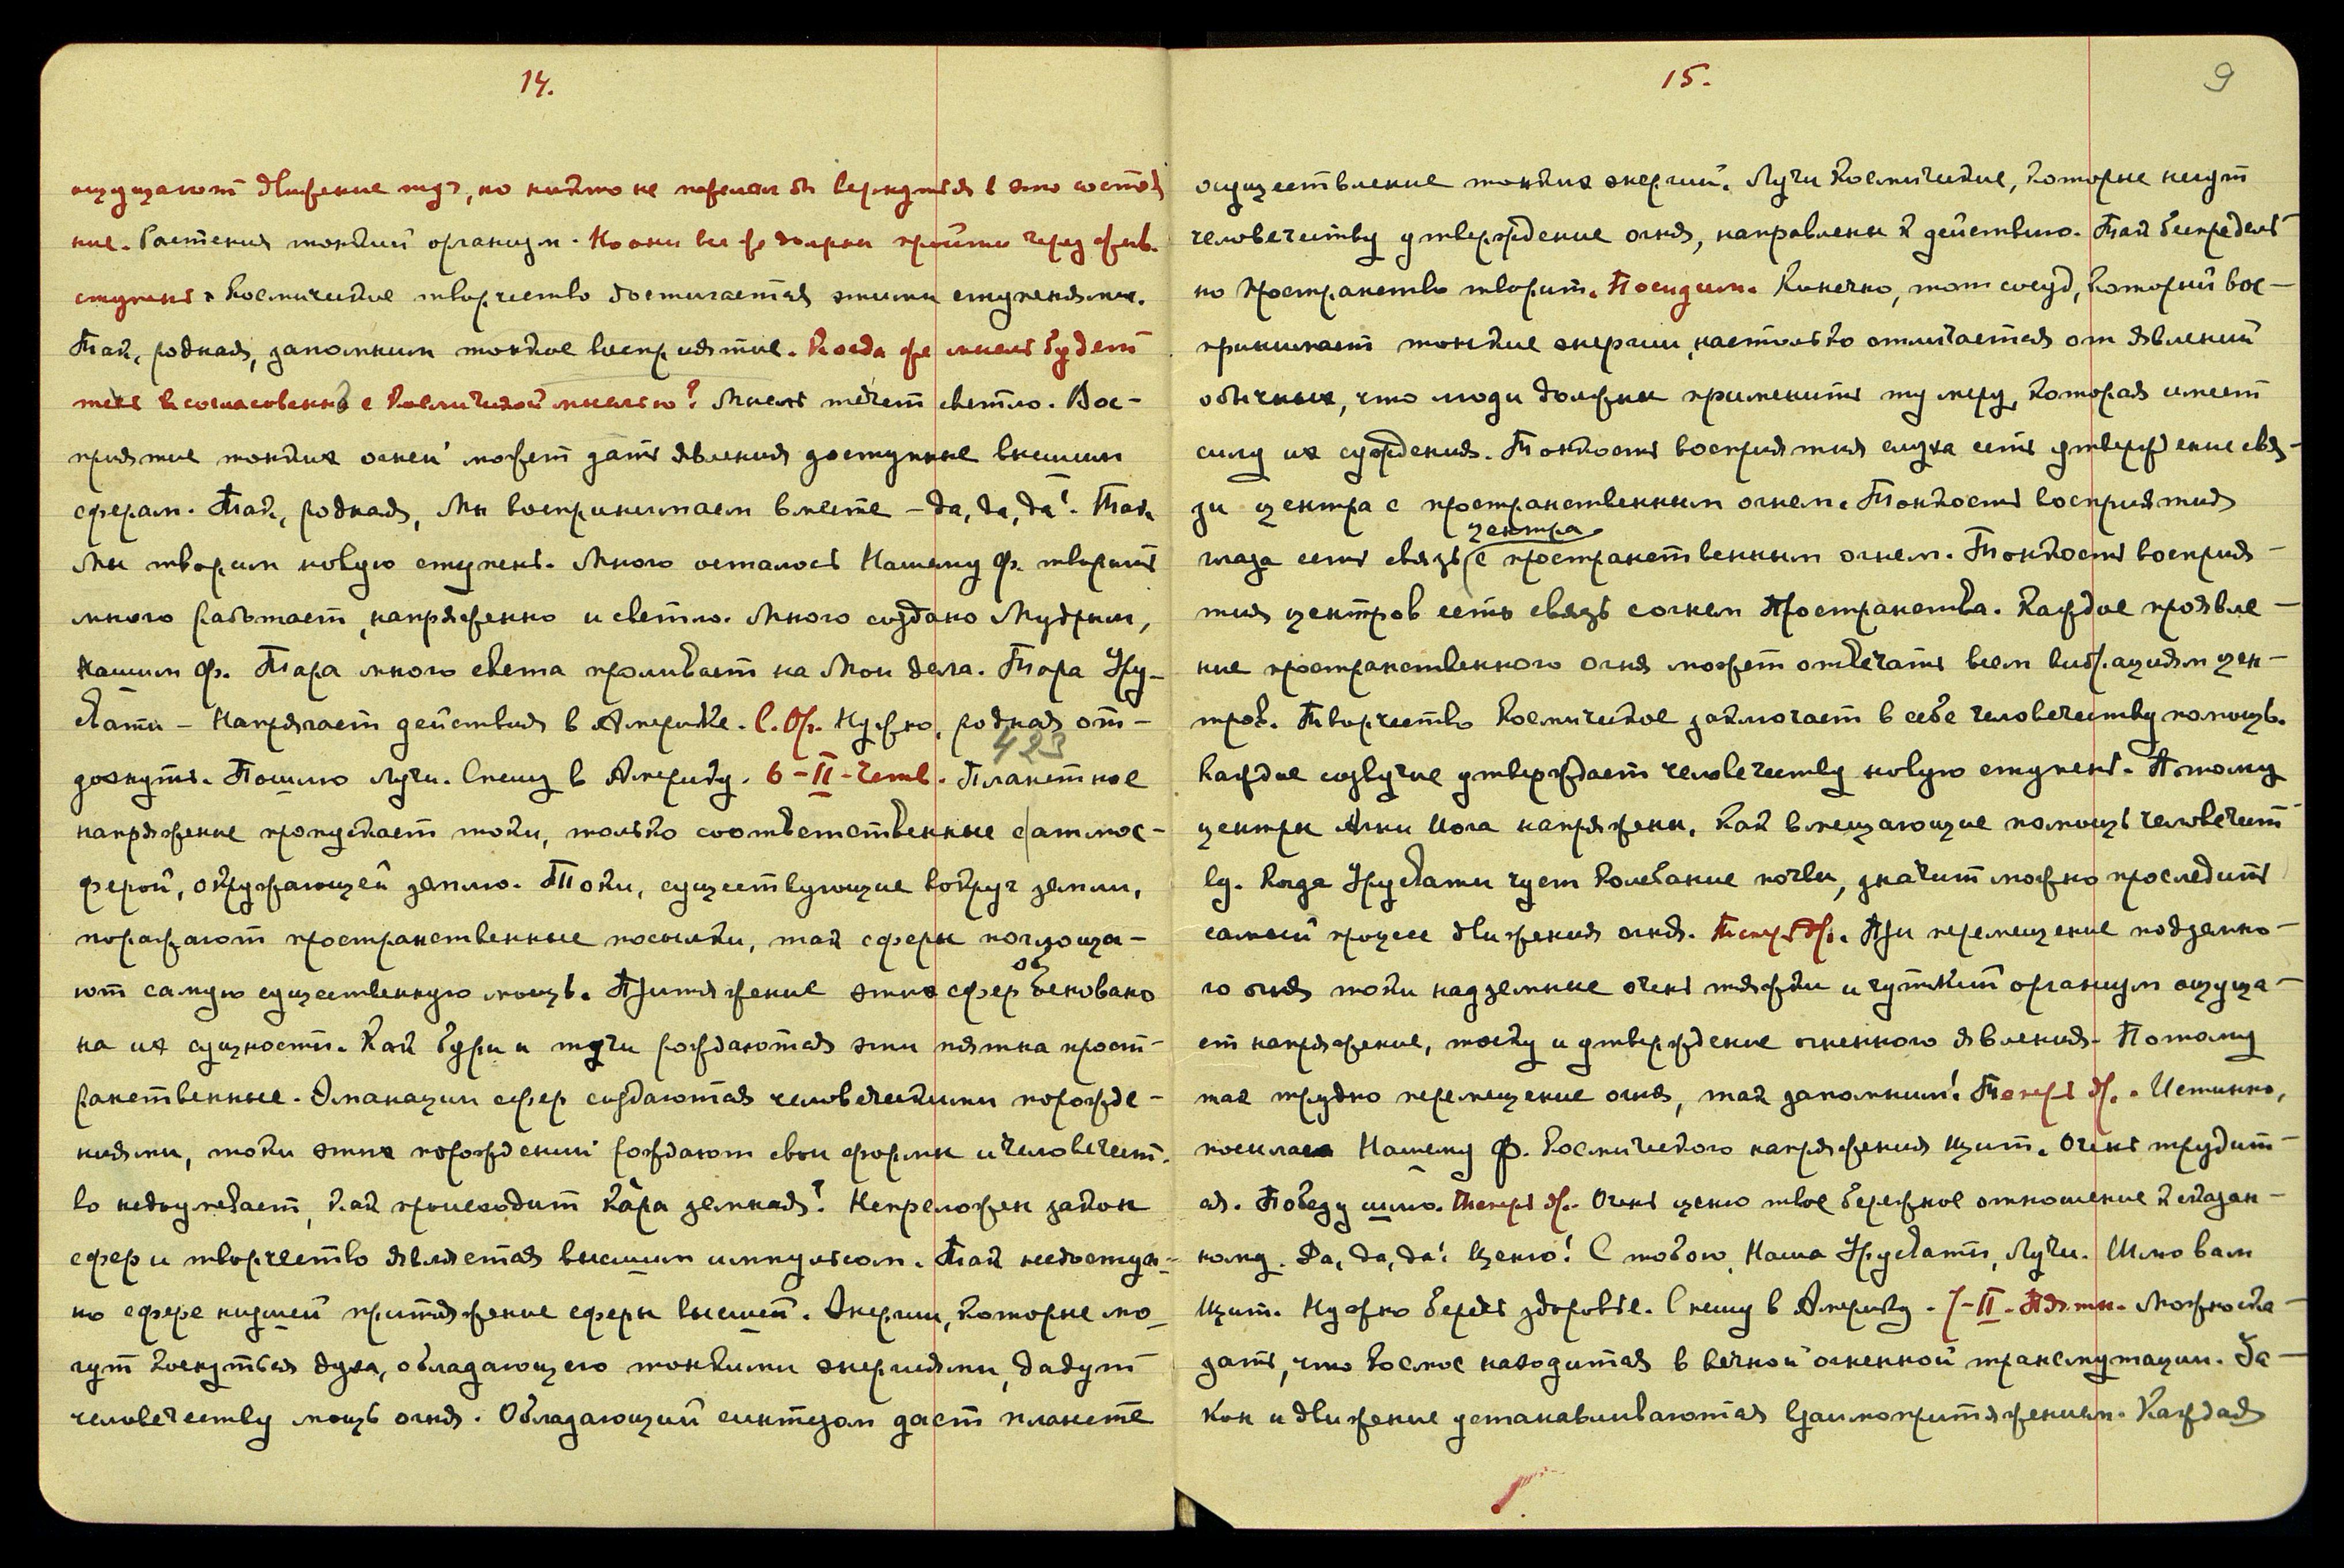 14.
ощущают движение туч, но никто не пожелал бы вернуться в это состоя
ние. Растения тонкий организм. Но они все ж должны пройти через жив.
ступень. Космическое творчество достигается этими ступенями.
Так, родная, запомним тонкое восприятие. Когда же мысль будет
течь в согласовании с космической мыслью? Мысль течет светло. Вос-
приятие тонких огней может дать явления доступные высшим
сферам. Так, родная, Мы воспринимаем вместе – да, да, да! Так
Мы творим новую ступень. Много осталось Нашему Ф. творить
много работает, напряженно и светло. Много создано Мудрым,
Нашим Ф. Тара много света проливает на Мои дела. Тара Уру-
свати – Напрягает действия в Америке. С. Ор. Нужно, родная от-
423
дохнуть. Пошлю Лучи. Спешу в Америку. 6-II-четв. Планетное
напряжение пропускает токи, только соответственные с атмос-
ферой, окружающей землю. Токи, существующие вокруг земли,
поражают пространственные посылки, так сферы поглоща-
ют самую существенную мощь. Притяжение этих сфер основано
на их сущности. Как бури и тучи рождаются эти пятна прост-
ранственные. Эманации сфер создаются человеческими порожде-
ниями, токи этих порождений рождают свои формы и человечест-
во недоумевает, как происходит кара земная? Непреложен закон
сфер и творчество является высшим импульсом. Так недоступ-
но сфере низшей притяжение сферы высшей. Энергии, которые мо-
гут коснуться духа, обладающего тонкими энергиями, дадут
человечеству мощь огня. Обладающий синтезом дает планете
15.
9
осуществление тонких энергий. Лучи космические, которые несут
человечеству утверждение огня, направлены к действию. Так беспредель-
но Пространство творит. Посидим. Конечно, тот сосуд, который вос-
принимает тонкие энергии, настолько отличается от явлений
обычных, что люди должны применить ту меру, которая имеет
силу их суждения. Тонкость восприятия слуха есть утверждение свя-
зи центра с пространственным огнем. Тонкость восприятия
центра
глаза есть связь с пространственным огнем. Тонкость восприя-
тия центров есть связь с огнем Пространства. Каждое проявле-
ние пространственного огня может отвечать всем вибрациям цен-
тров. Творчество космическое заключает в себе человечеству помощь.
Каждое созвучие утверждает человечеству новую ступень. Потому
центры Агни Йога напряжены, как вмещающие помощь человечест-
ву. Когда Урусвати чует колебание почвы, значит можно проследить
самый процесс движения огня. Теперь др. При перемещение подземно-
го огня токи надземные очень тяжки и чуткий организм ощуща-
ет напряжение, тоску и утверждение огненного явления. Потому
так трудно перемещение огня, так запомним! Теперь др. Истинно,
посылаем Нашему Ф. Космического напряжения щит. Очень трудит-
ся. Победу шлю. Теперь др. Очень ценю твое бережное отношение к сказан-
ному. Да, да, да! Ценю! С тобою, Наша Урусвати, Лучи. Шлю вам
Щит. Нужно беречь здоровье. Спешу в Америку. 7-II-Пятн. Можно ска-
зать, что Космос находится в вечной огненной трансмутации. За-
кон и движение устанавливаются взаимопритяжением. Каждая